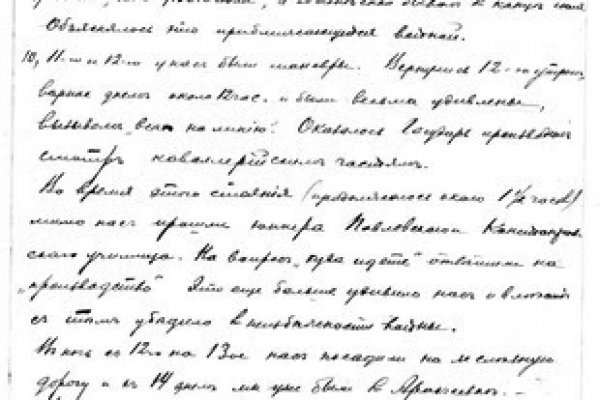 Объяснялось это приближающейся войной.
10, 11-го и 12-го у нас были маневры. Вернулись 12-го утром,
вернее днем около 12 час. и были весьма удивлены,
вызовом "всех на линию". Оказалось Государь производил
смотр кавалерийским частям.
Во время этого стояния (продолжалось около 1½ часов)
мимо нас прошли юнкера Павловского
ского училища. На вопрос "куда идете" ответили на
"производство" Это еще больше удивило нас и
с тем убедило в неизбежности войны.
В ночь с 12го на 13ое нас посадили на железную
дорогу и к 14 днем мы уже были в